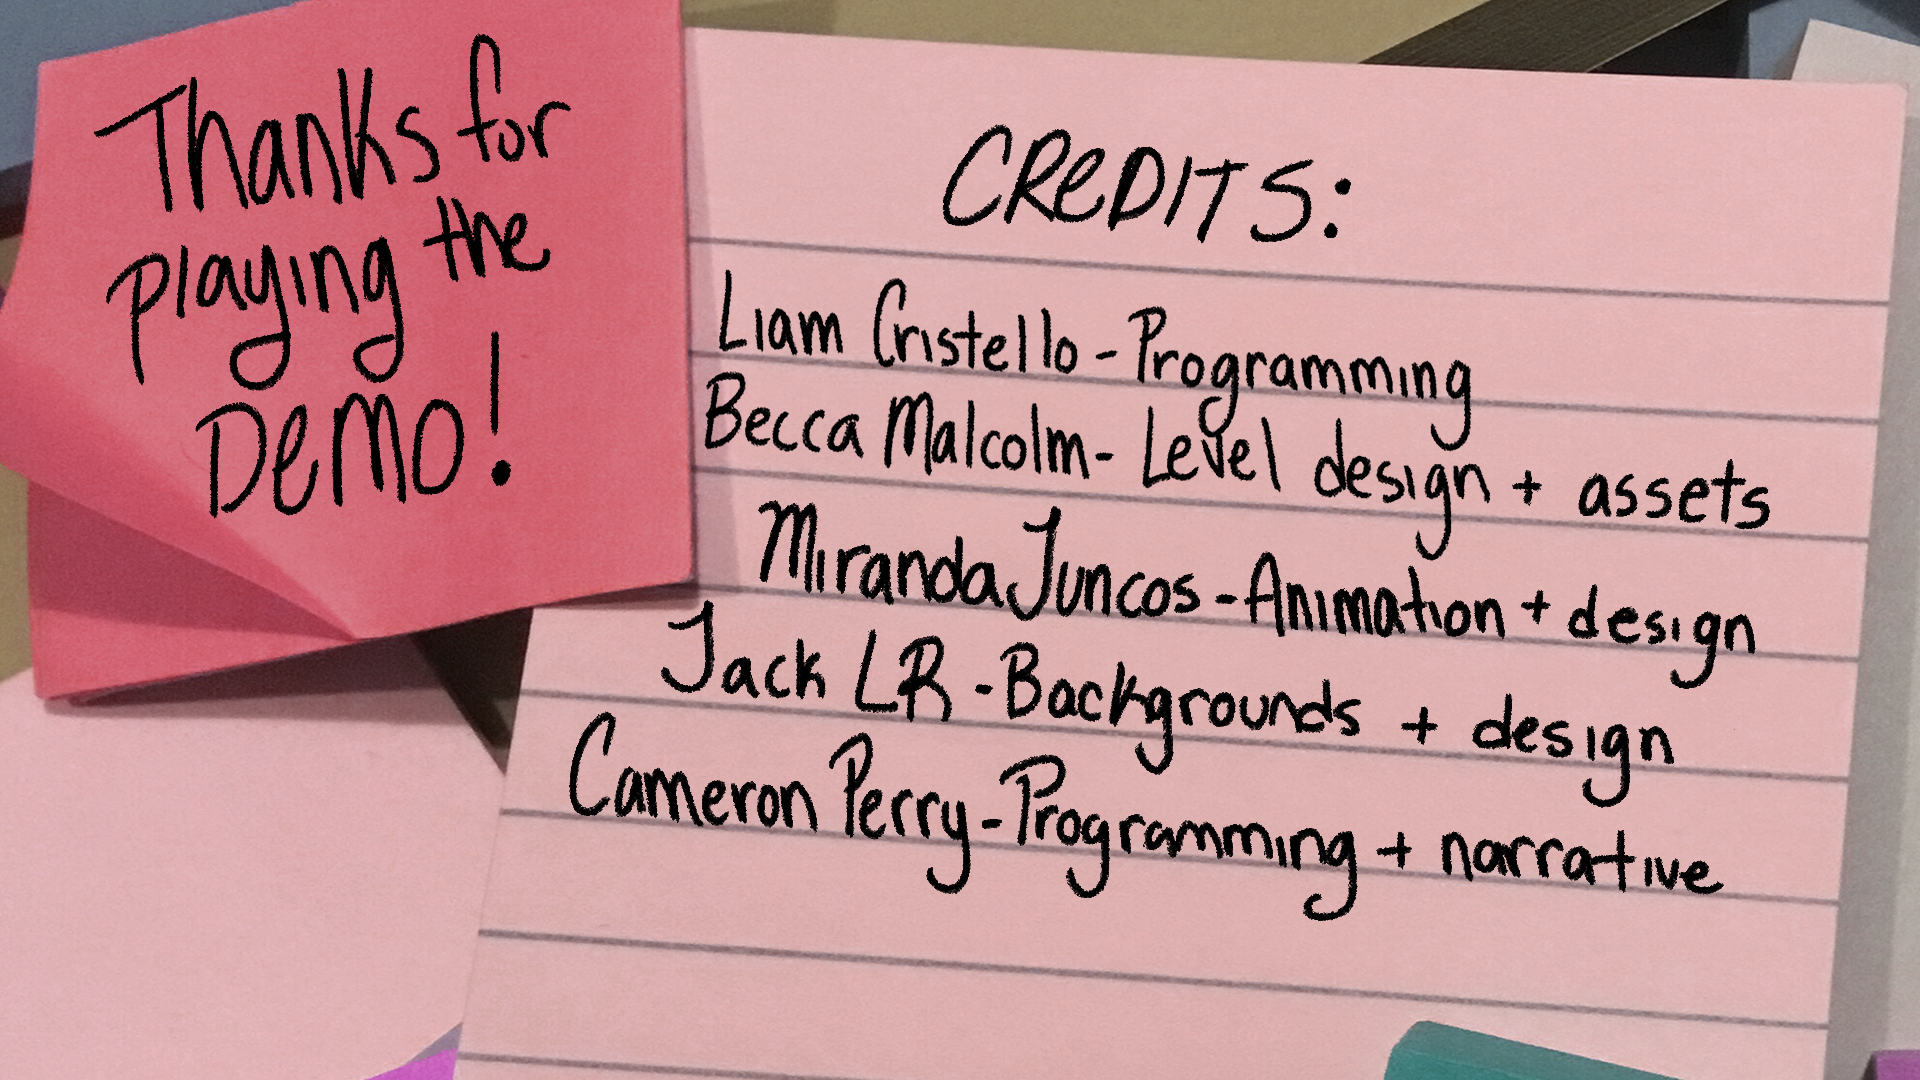 Thanks for
playing the
Demo!
CReDITS:
Liam Cristello - Programming
Becca Malcolm - Level design + assets
Miranda Juncos - Animation + design
Jack LR - Backgrounds + design
Cameron Perry - Programming + narrative